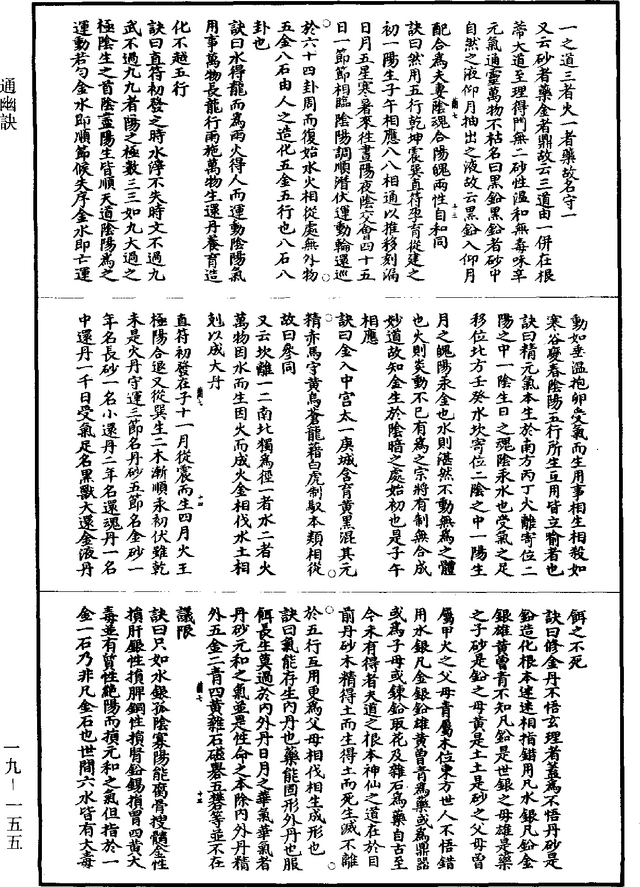 通幽訣
一之道三者火一者藥故名守一
又云砂者藥金者鼎故云三道由一併在根
蒂大道至理得門無二砂性溫和無毒味辛
元氣通靈萬物不枯名曰黑鉛黑鉛者砂中
自然之液仰月抽出之液故云黑鉛入仰月
配合為夫妻陰魂合陽魄兩性自和同
訣曰然用五行乾坤震巽直符孕育從建之
初一陽生子午相應八八相通以推移刻漏
日月五星寒暑來往晝陽夜陰交會四十五
日一節節相臨陰陽調順潛伏運動輪還巡
於六十四卦周而復始水火相從處無外物
五金八石由人之造化五金五行也八石八
卦也
訣曰水得龍而為雨火得人而運動陰陽氣
用事萬物長龍行雨施萬物生還丹養育造
化不越五行
訣曰直符初發之時水淳不失時文不過九
武不過九九者陽之極數三三如九大過之
極陰生之首陰盡陽生皆順天道陰陽為之
運動若勻金水即順節候失序金水即亡運
動如垂溫抱卵受氣而生用事相生相殺如
寒谷變春陰陽五行所生互用皆立喻者也
訣曰精元氣本生於南方丙丁火離寄位二
陽之中一陰生日之魂陰汞水也受氣之足
移位北方壬癸水坎寄位二陰之中一陽生
月之魄陽汞金也水則湛然不動無為之體
也火則炎動不已有為之宗將有制無合成
妙道故知金生於陰暗之處始初也是子午
相應
訣曰金入中宮太一庚城含育黃黑混其元
精赤馬宇黃烏蒼龍藉白虎制馭本類相從
故曰參同
又云坎離一二南北獨為徑一者水二者火
萬物因水而生因火而成火金相伐水土相
剋以成大丹
直符初發在子十一月從震而生四月火王
極陽合退又從巽生二木漸順汞初伏雖乾
未是火丹守運三節名丹砂五節名金砂一
年名長砂一名小還丹二年名還魂丹一名
中還丹一千日受氣足名黑獸大還金液丹
餌之不死
訣曰修金丹不悟玄理者蓋為不悟丹砂是
鉛造化根本遞遞相指錯用凡水銀凡鉛金
銀雄黃曾青不知凡鉛是世銀之母雄是藥
之子砂是鉛之母黃是土土是砂之父母曾
屬甲火之父母青屬木位東方世人不悟錯
用水銀凡金銀鉛雄黃曾青為藥或為鼎器
或為子母或鍊鉛取花及雜石為藥自古至
今未有得者夫道之根本神仙之道在於目
前丹砂木精得土而生得土而死生滅不離
於五行互用更為父母相伐相生成形也
訣曰氣能存生內丹也藥能固形外丹也服
餌長生莫過於內外丹日月之華氣華氣者
丹砂元和之氣並是性命之本除內外丹精
外五金二青四黃雜石磁礜五礬等並不在
議限
訣曰只如水銀孤陰寡陽能腐骨搜髓金性
損肝銀性損脾鋼性損腎鉛錫損胃四黃大
毒並有質性絕陽而損元和之氣但指於一
金一石乃非凡金石也世間六水皆有大毒
一九－一五五